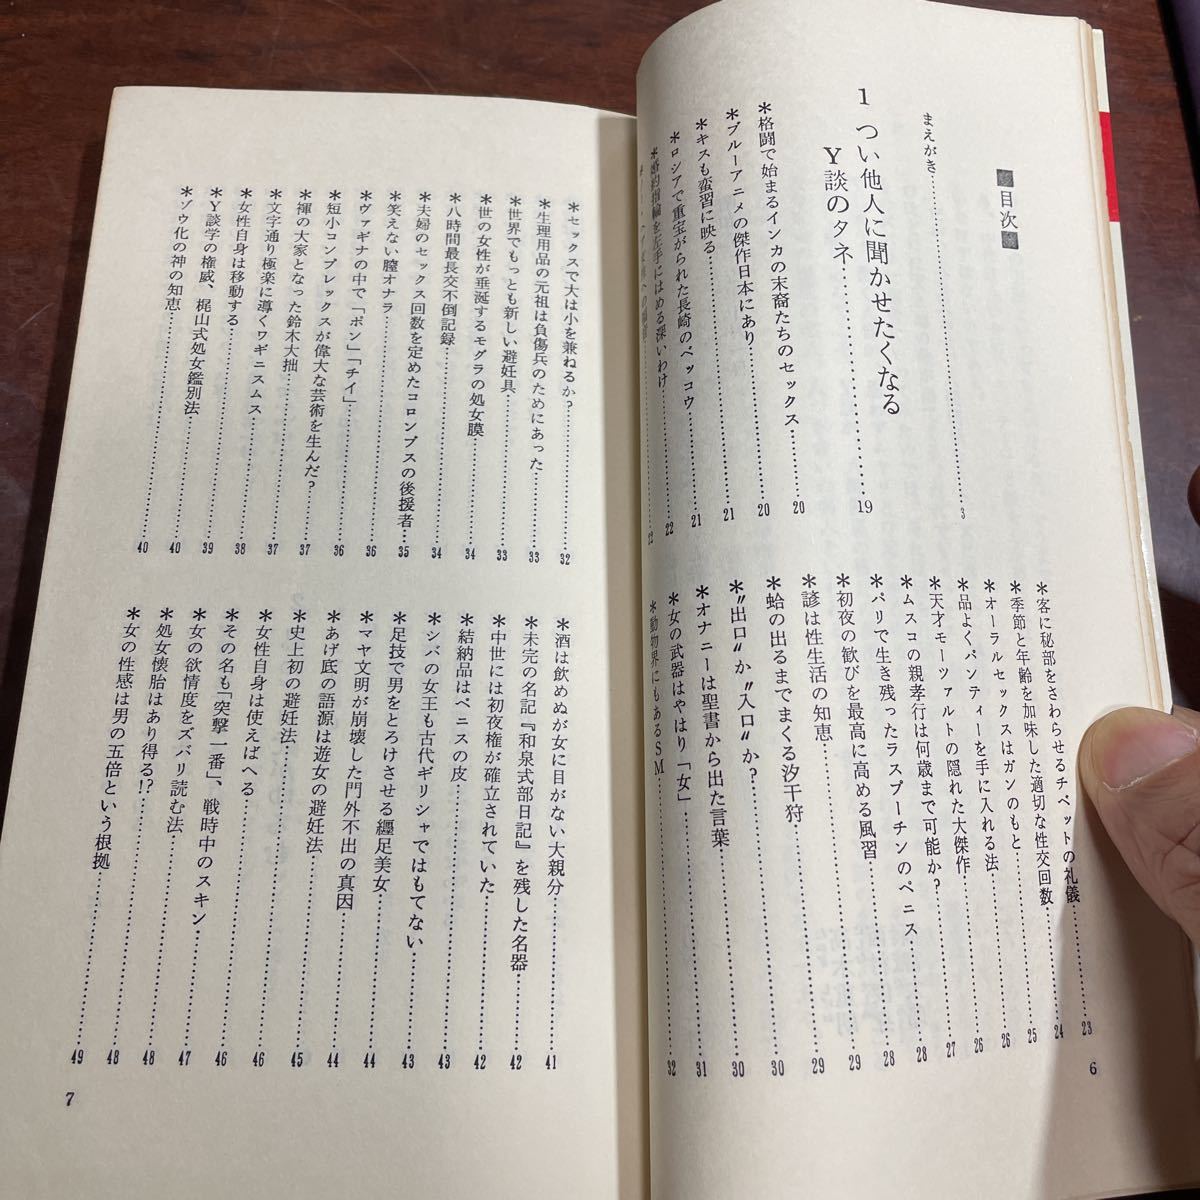 ■目次■
まえがき……3
1 つい他人に聞かせたくなる
Y談のタネ……19
＊格闘で始まるインカの末裔たちのセックス……20
＊ブルーアニメの傑作日本にあり……20
＊キスも蛮習に映る……21
＊ロシアで重宝がられた長崎のベッコウ……21
＊婚約指輪を左手にはめる深いわけ……22
22
＊客に秘部をさわらせるチベットの礼儀……23
＊季節と年齢を加味した適切な性交回数……24
＊オーラルセックスはガンのもと……25
＊品よくパンティーを手に入れる法……26
＊天才モーツァルトの隠れた大傑作……26
＊ムスコの親孝行は何歳まで可能か？……27
＊パリで生き残ったラスプーチンのペニス……28
＊初夜の歓びを最高に高める風習……28
＊諺は性生活の知恵……29
＊蛤の出るまでまくる汐干狩……29
＊〝出口〟か〝入口〟か？……30
＊オナニーは聖書から出た言葉……30
＊女の武器はやはり「女」……31
＊動物界にもあるSM……32
6
＊セックスで大は小を兼ねるか？……32
＊生理用品の元祖は負傷兵のためにあった……33
＊世界でもっとも新しい避妊具……33
＊世の女性が垂涎するモグラの処女膜……34
＊八時間最長交不倒記録……34
＊夫婦のセックス回数を定めたコロンブスの後援者……35
＊笑えない膣オナラ……36
＊ヴァギナの中で「ポン」「チイ」……36
＊短小コンプレックスが偉大な芸術を生んだ？……37
＊褌の大家となった鈴木大拙……37
＊文字通り極楽に導くワギニスムス……38
＊女性自身は移動する……39
＊Y談学の権威、梶山式処女鑑別法……40
＊ゾウ化の神の知恵……40
＊酒は飲めぬが女に目がない大親分……41
＊未完の名記『和泉式部日記』を残した名器……42
＊中世には初夜権が確立されていた……42
＊結納品はペニスの皮……43
＊シバの女王も古代ギリシャではもてない……43
＊足技で男をとろけさせる纏足美女……44
＊マヤ文明が崩壊した門外不出の真因……44
＊あげ底の語源は遊女の避妊法……45
＊史上初の避妊法……46
＊女性自身は使えばへる……46
＊その名も「突撃一番」、戦時中のスキン……47
＊女の欲情度をズバリ読む法……48
＊処女懐胎はあり得る!?……48
＊女の性感は男の五倍という根拠……49
7